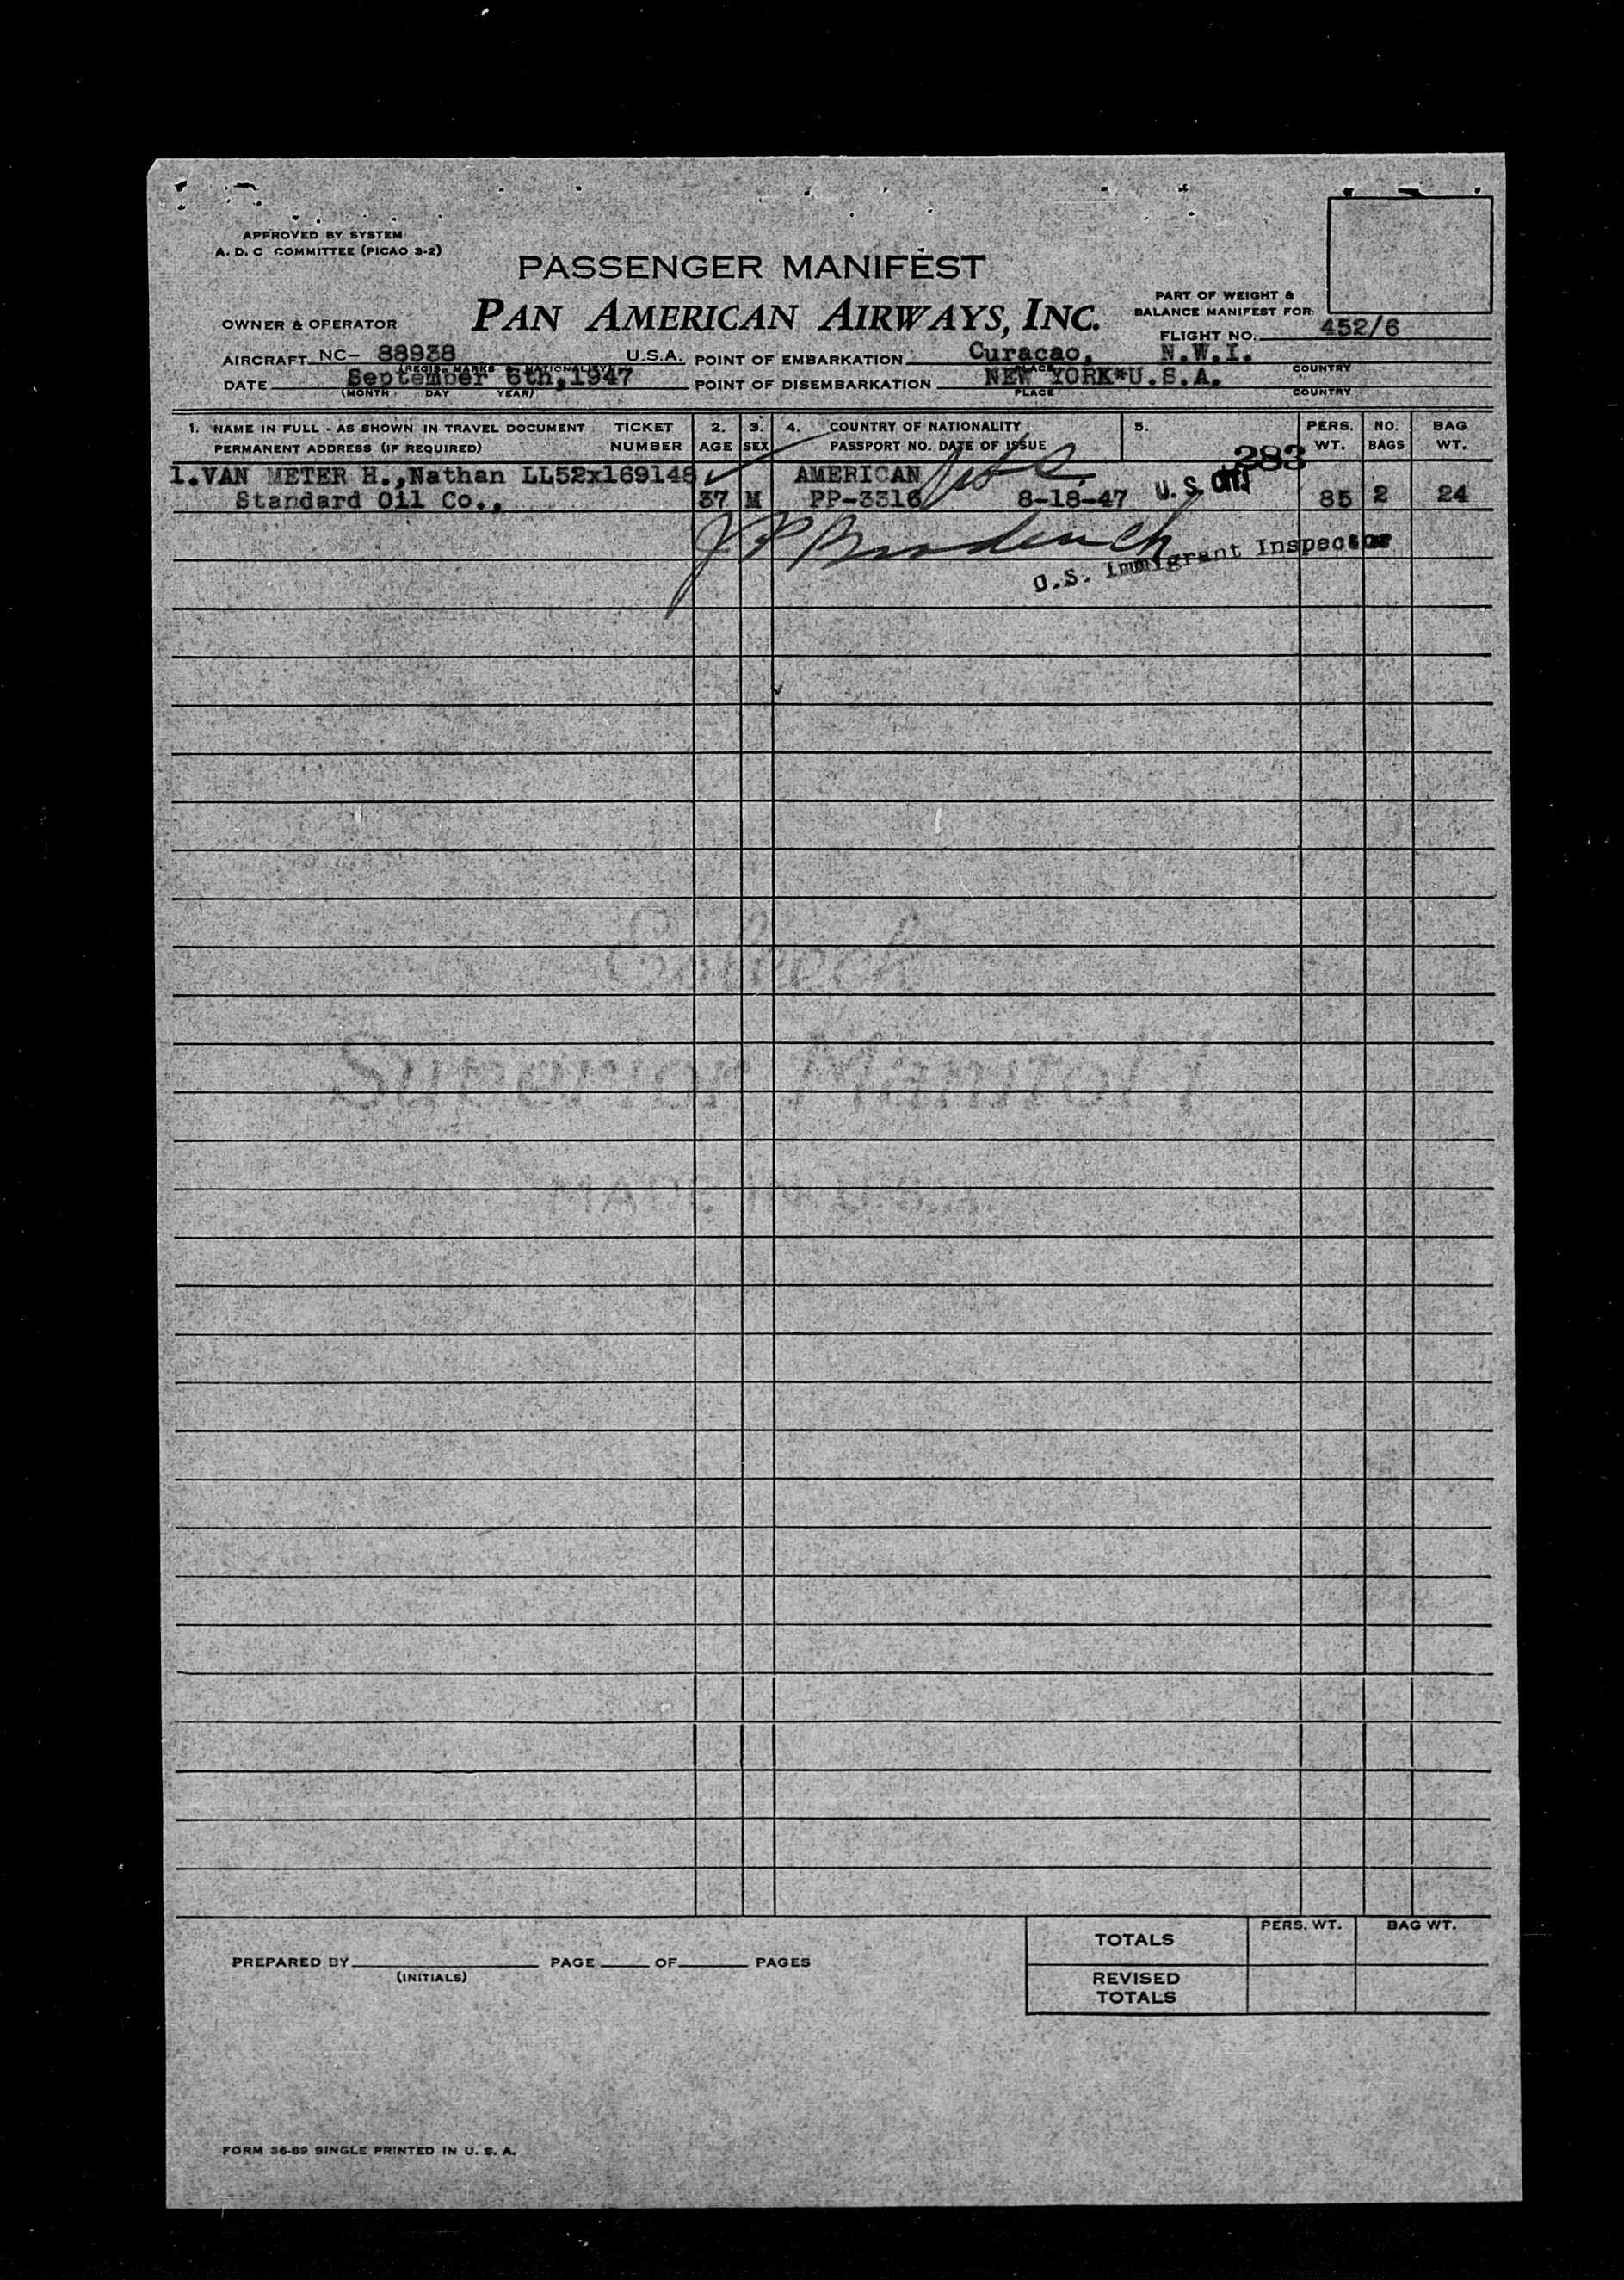 APPROVED BY SYSTEM
A. D. C COMMITTEE (PICAO 3-2)
PASSENGER MANIFEST
PAN AMERICAN AIRWAYS, INC.
PART OF WEIGHT &
BALANCE MANIFEST FOR
OWNER & OPERATOR
FLIGHT NO. 452/6
AIRCRAFT NC- 88938 U.S.A. POINT OF EMBARKATION Curacao, N.W.I.
(REGIS. MARKS & NATIONALITY) PLACE COUNTRY
DATE September 6th,1947 POINT OF DISEMBARKATION NEW YORK*U.S.A.
(MONTH DAY YEAR) PLACE COUNTRY
1. NAME IN FULL - AS SHOWN IN TRAVEL DOCUMENT TICKET 2. 3. 4. COUNTRY OF NATIONALITY 5. PERS. NO. BAG
PERMANENT ADDRESS (IF REQUIRED) NUMBER AGE SEX PASSPORT NO. DATE OF ISSUE WT. BAGS WT.
283
1.VAN METER H.,Nathan LL52x169148 AMERICAN
Standard Oil Co., 37 M PP-3316 8-18-47 U.S. 85 2 24
U.S. Immigrant Inspector
Superior Manifold
MADE IN U.S.A.
TOTALS PERS. WT. BAG WT.
PREPARED BY PAGE OF PAGES
(INITIALS)
REVISED
TOTALS
FORM 36-89 SINGLE PRINTED IN U. S. A.